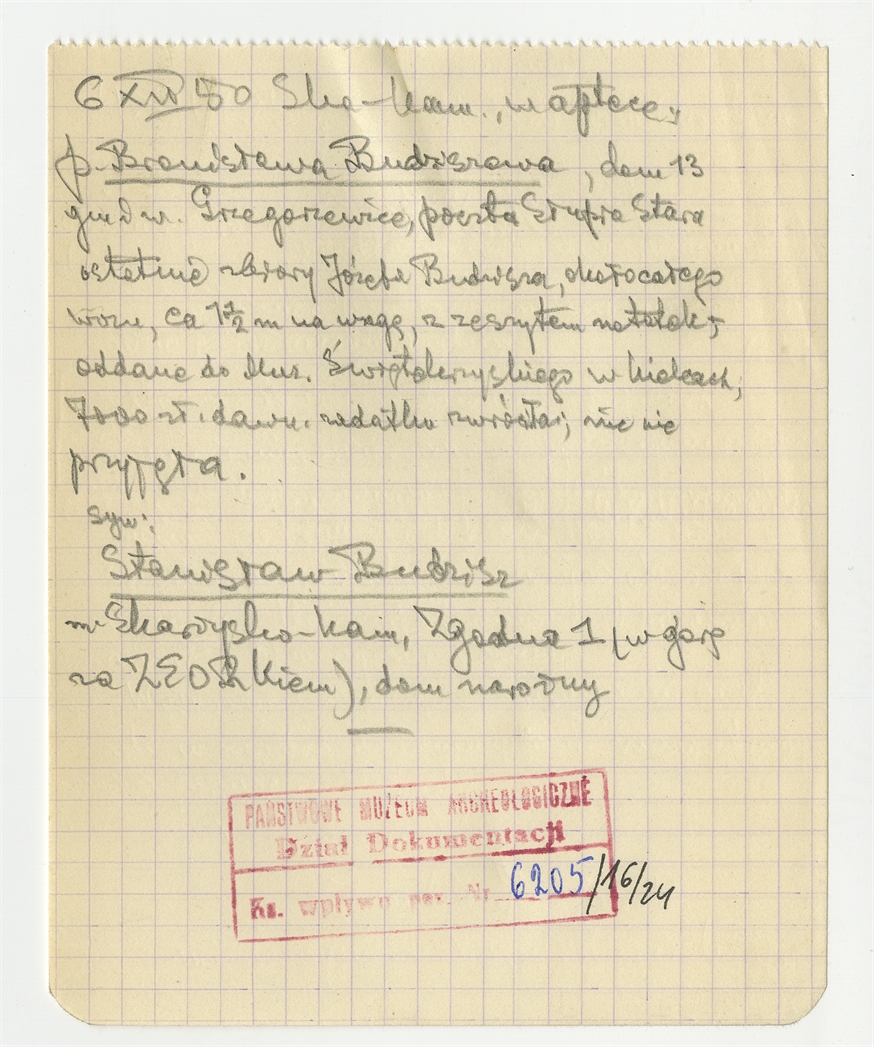 6 XII 50 Ska-kam., w aptece:
p. Bronisława Budziszowa, dom 13
gm d w. Grzegorzewice, poczta Słupia Stara
ostatnie zbiory Józefa Budzisza, około całego
wozu, ca 1½ m na wagę, z zeszytem notatek,
oddane do Muz. Świętokrzyskiego w Kielcach,
7000 zł. dawn. zadatku zwróciła; nic nie
przyjęła.
syn:
Stanisław Budzisz
m. Skarżysko-kam, Zgodna 1 (w górę
za ZEORKiem), dom narożny
PAŃSTWOWE MUZEUM ARCHEOLOGICZNE
Dział Dokumentacji
Ks. wpływu Nr 6205/16/24